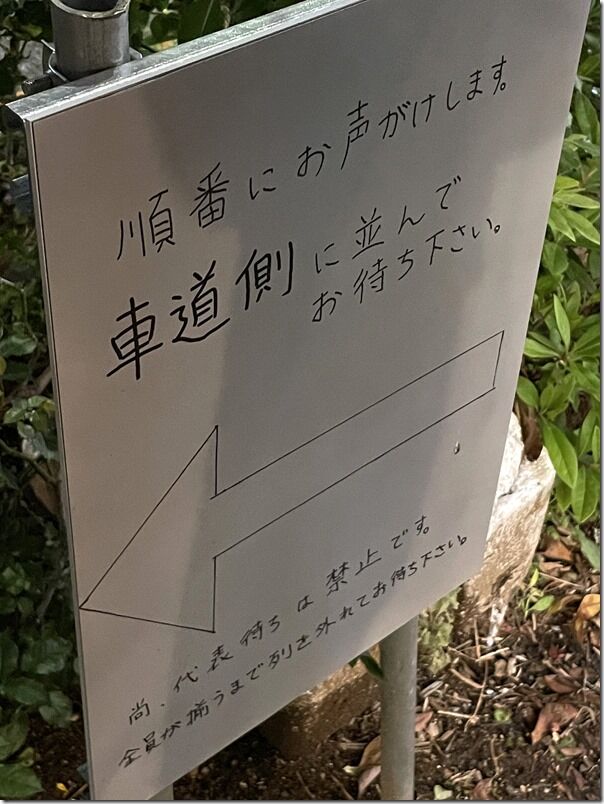 順番にお声がけします。
車道側に並んで
お待ち下さい。
尚、代表待ちは禁止です。
全員が揃うまで列を外れてお待ち下さい。